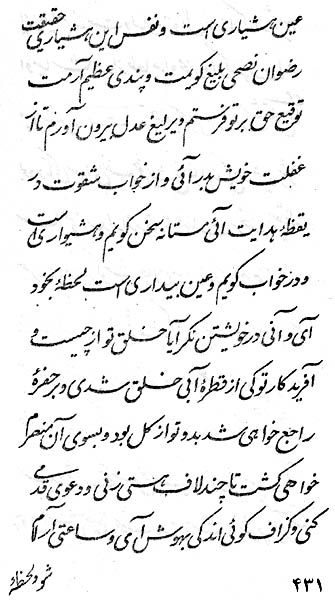 عین هشیاری است و نفس این هشیاری حقیقت
رضوان نصحی بلیغ گویمت و پندی عظیم آرمت
توقیع حق بر تو فرستم و یرلیغ عدل بیرون آورم تا از
غفلت خویش بدر آئی و از خواب شقوت در
یقظهٔ هدایت آئی مستانه سخن گویم و هشیواری است
و در خواب گویم و عین بیداری است لحظهٔ بخود
آی و آنی در خویشتن نگر آیا خلق تو از چیست و
آفریدگار تو کی از قطرهٔ آبی خلق شدی و بر حفرهٔ
راجع خواهی شد بدو تو از گل بود و بسوی آن منصرم
خواهی گشت تا چند لاف هستی زنی و دعوی قدمی
کنی و گزاف گوئی اندکی بهوش آی و ساعتی آرام
شو و لحظهٔ
۴۳۱